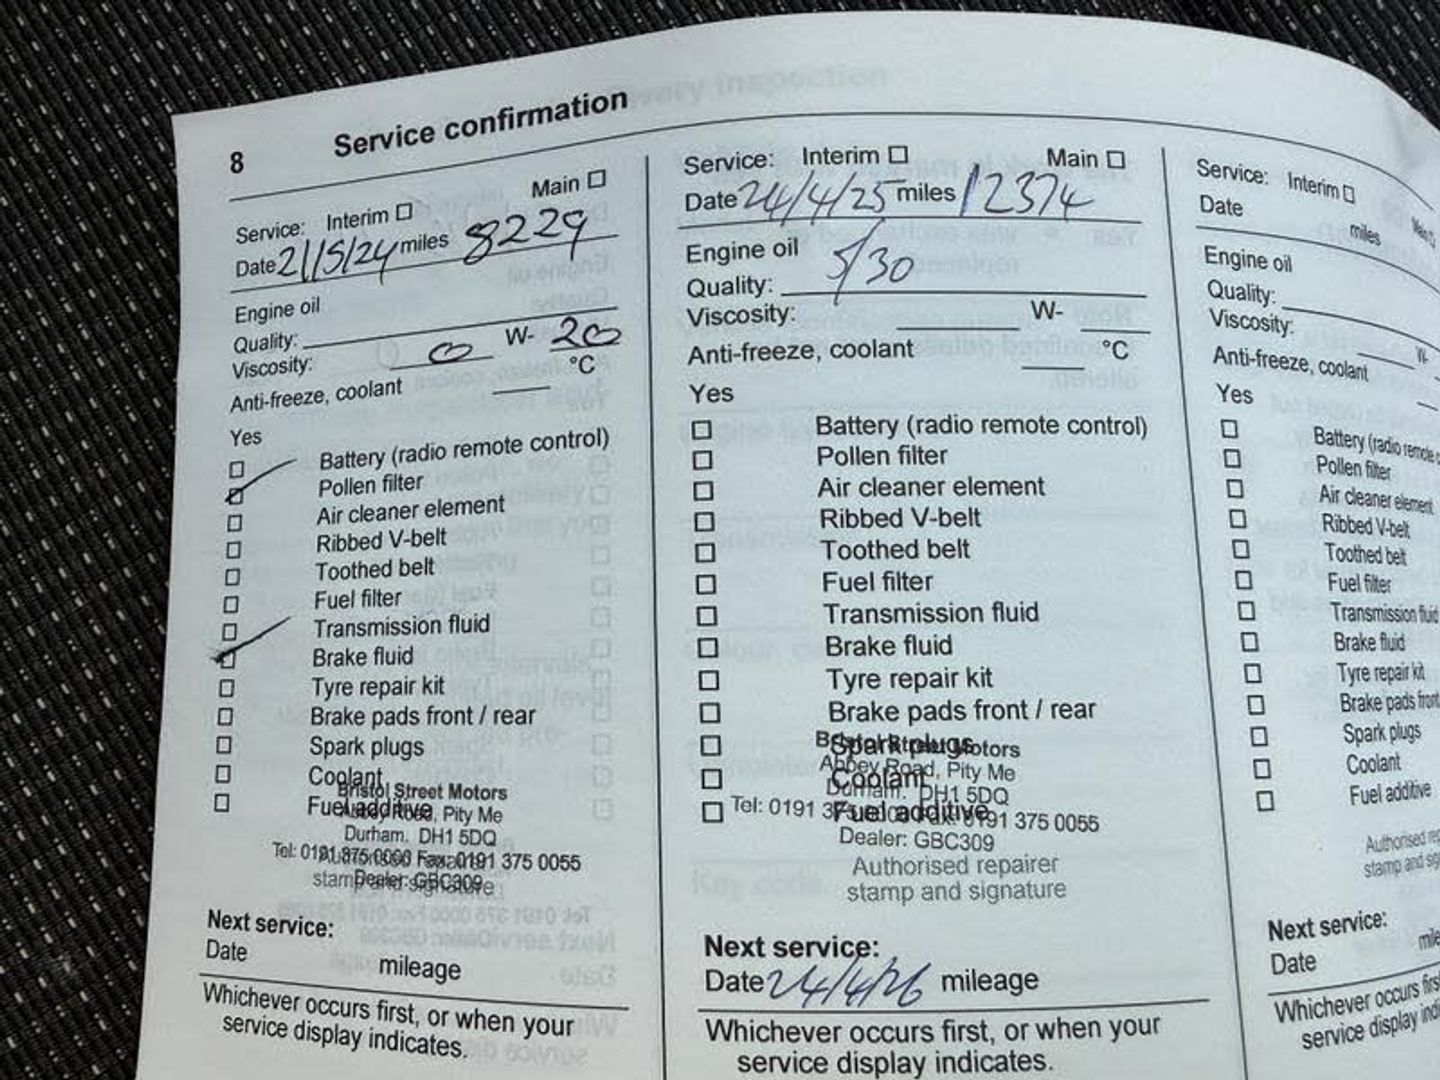 8 Service confirmation
Service: Interim Main
Date 21/5/24 miles 8229
Engine oil
Quality:
Viscosity: 0 W- 20
Anti-freeze, coolant °C
Yes
Battery (radio remote control)
Pollen filter
Air cleaner element
Ribbed V-belt
Toothed belt
Fuel filter
Transmission fluid
Brake fluid
Tyre repair kit
Brake pads front / rear
Spark plugs
Coolant
Fuel additive
Bristol Street Motors
Abbey Road, Pity Me
Durham. DH1 5DQ
Tel: 0191 375 0000 Fax: 0191 375 0055
Dealer: GBC309
Authorised repairer
stamp and signature
Next service:
Date mileage
Whichever occurs first, or when your
service display indicates.
Service: Interim Main
Date 24/4/25 miles 12374
Engine oil
Quality: 5/30
Viscosity: W-
Anti-freeze, coolant °C
Yes
Battery (radio remote control)
Pollen filter
Air cleaner element
Ribbed V-belt
Toothed belt
Fuel filter
Transmission fluid
Brake fluid
Tyre repair kit
Brake pads front / rear
Spark plugs
Coolant
Fuel additive
Bristol Street Motors
Abbey Road, Pity Me
Durham. DH1 5DQ
Tel: 0191 375 0000 Fax: 0191 375 0055
Dealer: GBC309
Authorised repairer
stamp and signature
Next service:
Date 24/4/26 mileage
Whichever occurs first, or when your
service display indicates.
Service: Interim Main
Date miles
Engine oil
Quality:
Viscosity: W-
Anti-freeze, coolant
Yes
Battery (radio remote
Pollen filter
Air cleaner element
Ribbed V-belt
Toothed belt
Fuel filter
Transmission fluid
Brake fluid
Tyre repair kit
Brake pads front
Spark plugs
Coolant
Fuel additive
Authorised
stamp and
Next service:
Date
Whichever occurs
service display